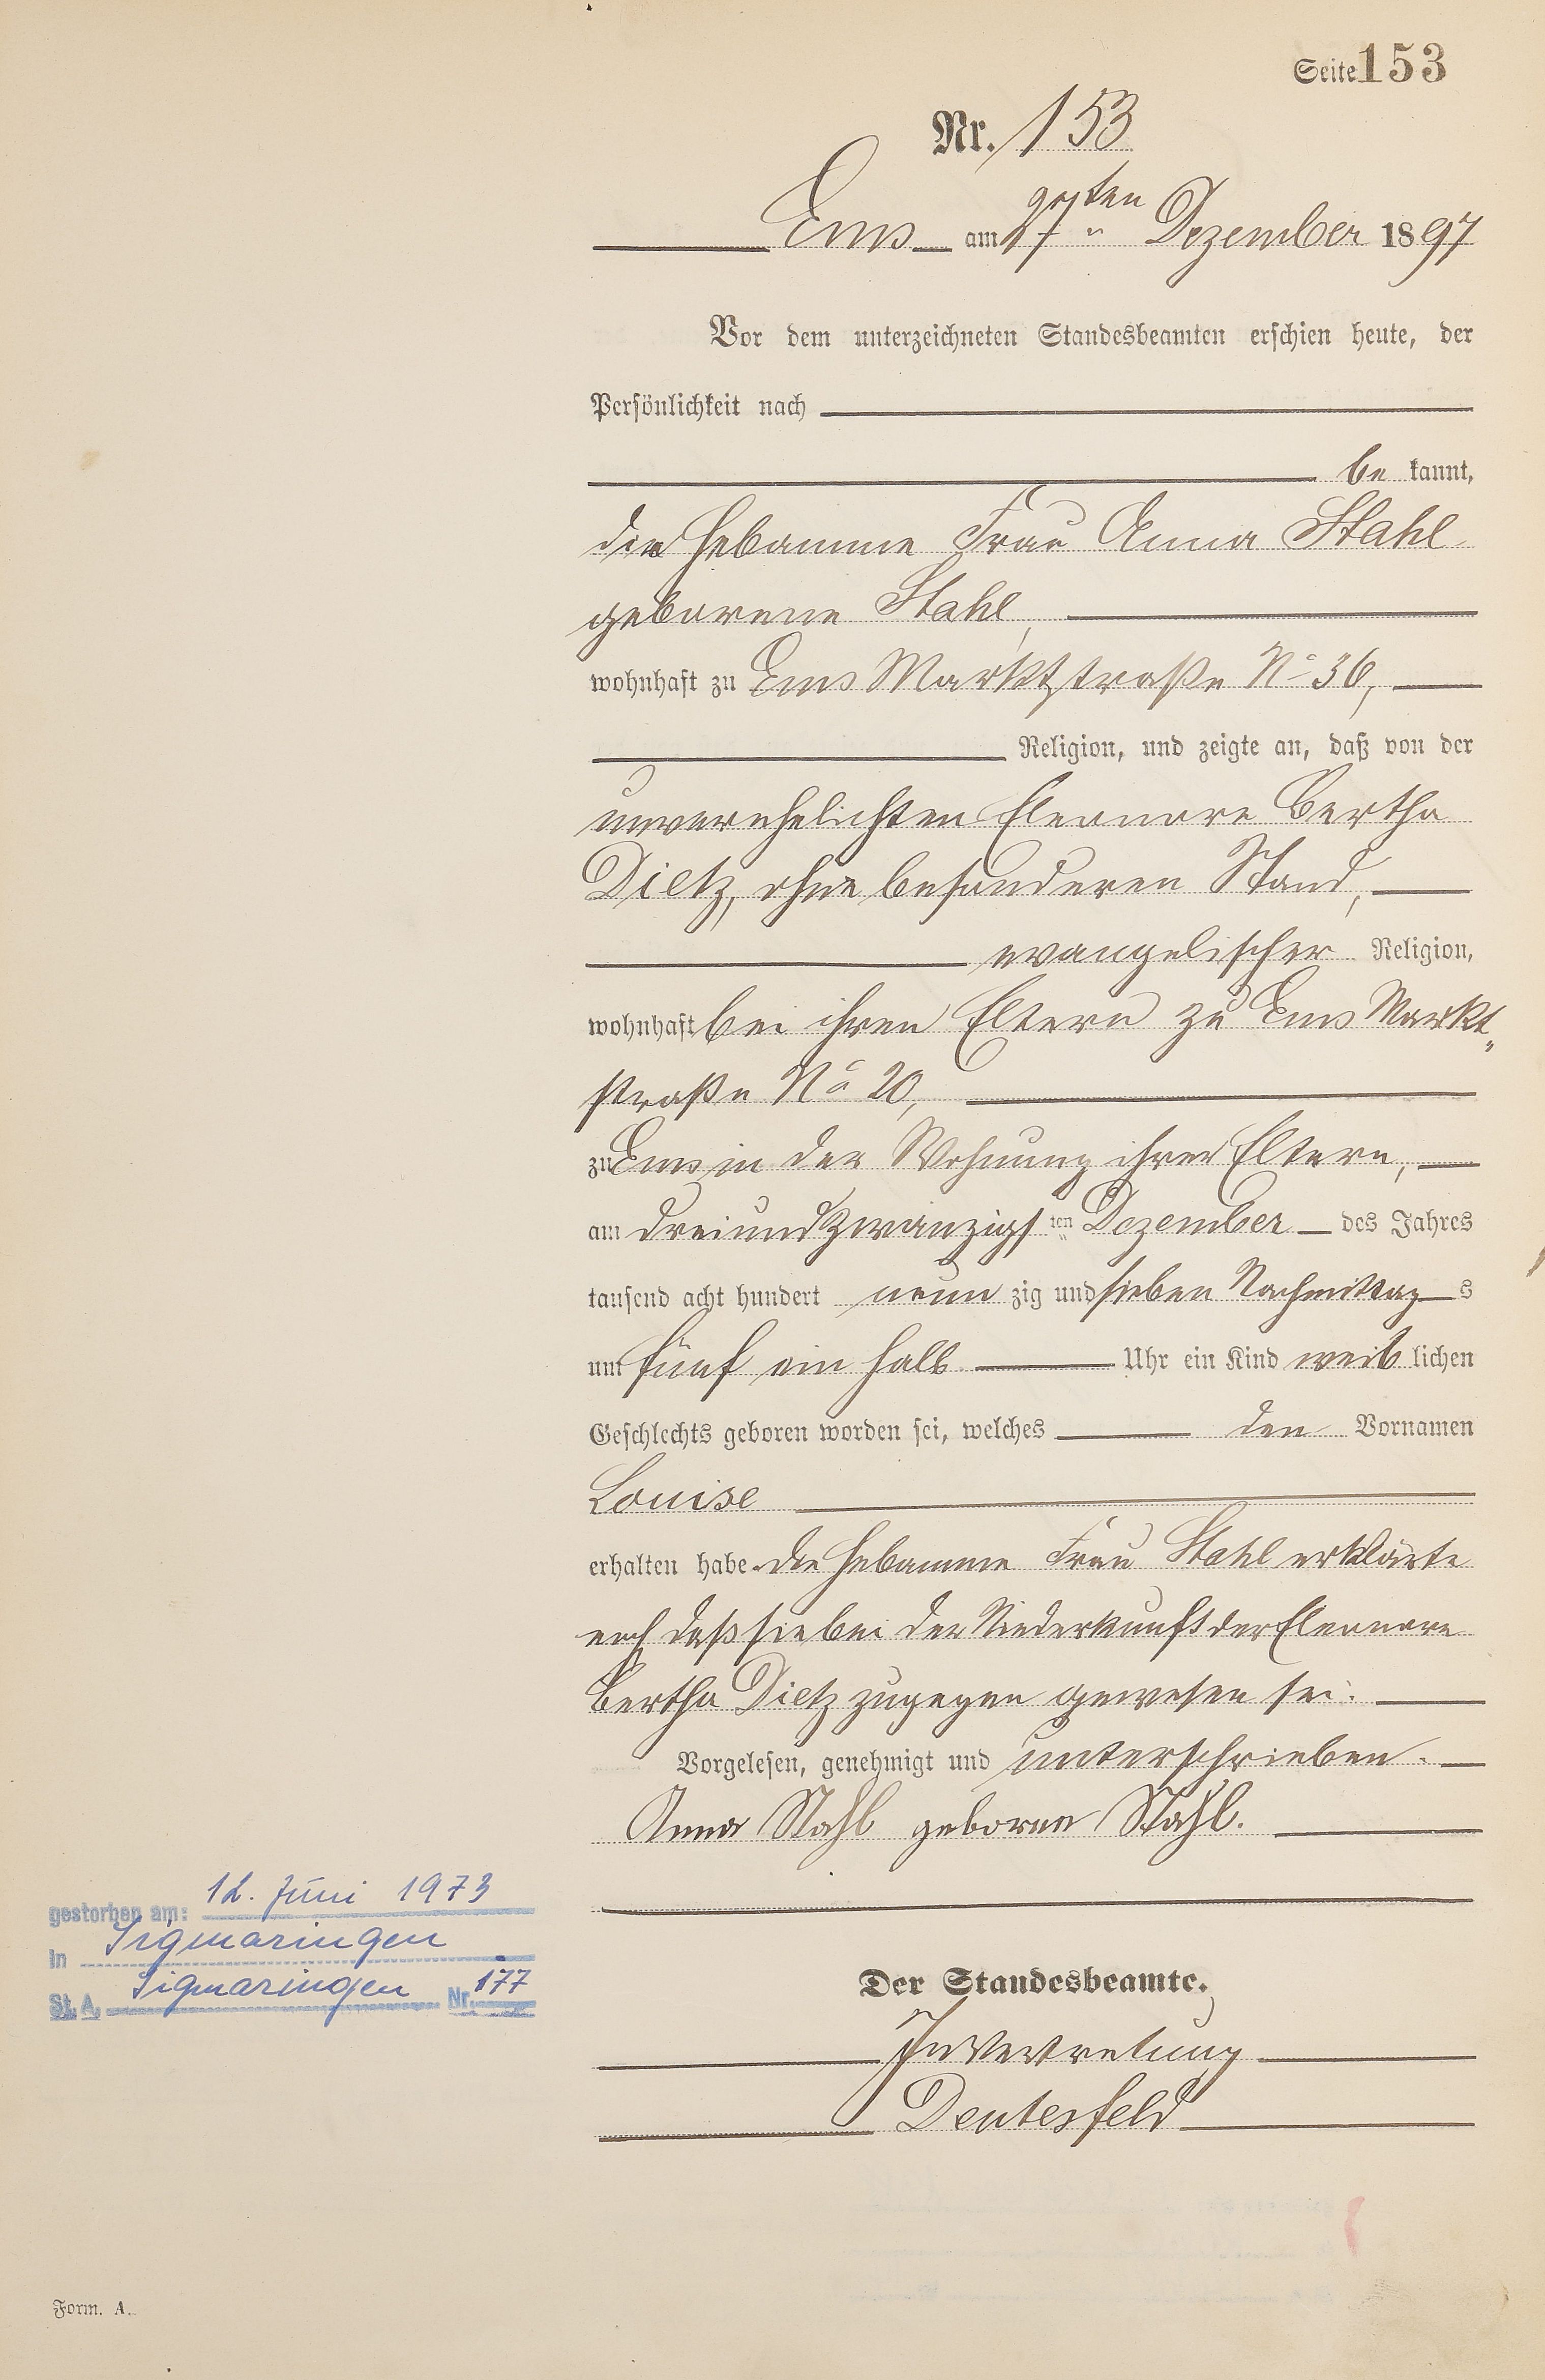 Seite 153
Nr. 153
Ems am ten Dezember 1897
Vor dem unterzeichneten Standesbeamten erschien heute, der
Persönlichkeit nach
be kannt,
die Hebamme Frau Anna Stahl
geborene Stahl,
wohnhaft zu Ems Marktstraße No 36,
Religion, und zeigte an, daß von der
unverehelichten Eleonore Bertha
Dietz, ohne besonderen Stand,
evangelischer Religion,
wohnhaft bei ihren Eltern zu Ems Markt„
straße No 20,
zu Ems in der Wohnung ihrer Eltern,
am dreiundzwanzigsten Dezember des Jahres
tausend acht hundert neun zig und sieben Nachmittags
um fünf ein halb Uhr ein Kind weib lichen
Geschlechts geboren worden sei, welches den Vornamen
Louise
erhalten habe. Die Hebamme Frau Stahl erklärte
noch daß sie bei der Niederkunft der Eleonore
Bertha Dietz zugegen gewesen sei.
Vorgelesen, genehmigt und unterschrieben.
Anna Stahl geborne Stahl.
gestorben am: 12. Juni 1973
in Sigmaringen
St. A. Sigmaringen Nr. 177
Der Standesbeamte.
In Vertretung
Deutesfeld
Form. A.